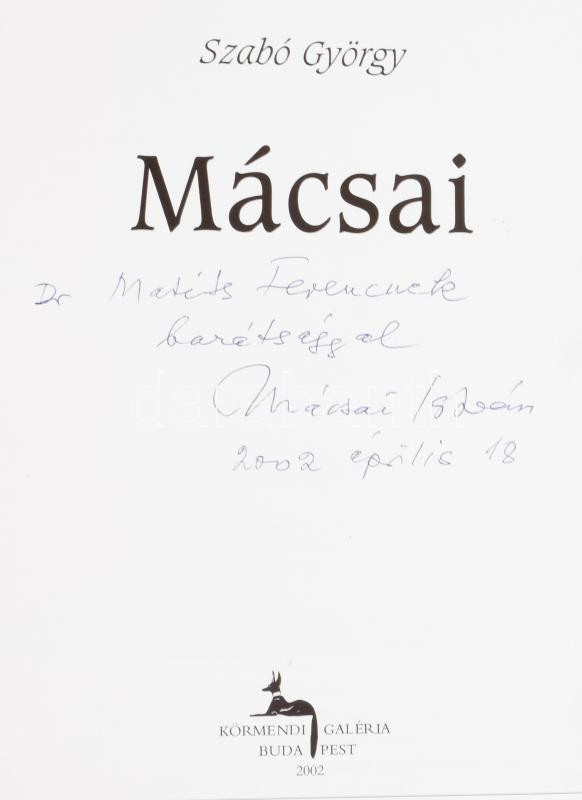 Szabó György
Mácsai
Dr Matits Ferencnek
barátsággal
Mácsai István
2002 április 18
KÖRMENDI GALÉRIA
BUDAPEST
2002